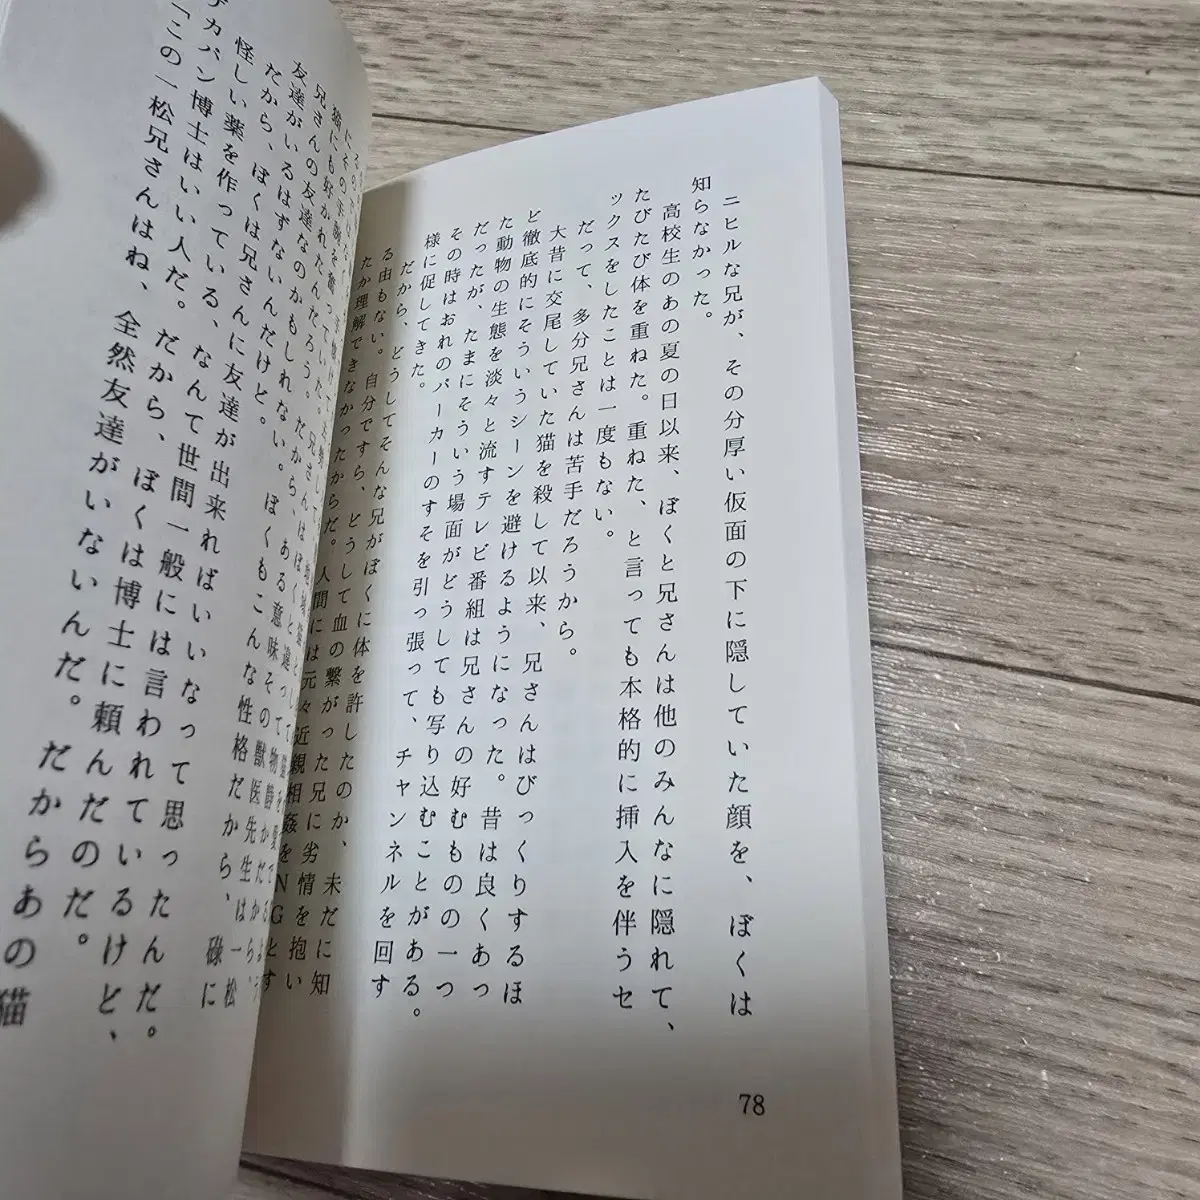 ニヒルな兄が、その分厚い仮面の下に隠していた顔を、ぼくは
知らなかった。
高校生のあの夏の日以来、ぼくと兄さんは他のみんなに隠れて、
たびたび体を重ねた。重ねた、と言っても本格的に挿入を伴うセ
ックスをしたことは一度もない。
だって、多分兄さんは苦手だろうから。
大昔に交尾していた猫を殺して以来、兄さんはびっくりするほ
ど徹底的にそういうシーンを避けるようになった。昔は良くあっ
た動物の生態を淡々と流すテレビ番組は兄さんの好むものの一つ
だったが、たまにそういう場面がどうしても写り込むことがある。
その時はおれのパーカーのすそを引っ張って、チャンネルを回す
様に促してきた。
だから、どうしてそんな兄がぼくに体を許したのか、未だに知
る由もない。自分ですら、どうして血の繋がった兄に劣情を抱い
たか理解できなかったからだ。人間には元々近親相姦をNGとす
78
猫にも好かれたんだろう。だから、ある意味その獣医先生は一松
兄さんの友達なのかもしれない。ぼくもこんな性格だから、碌に
友達がいるはずないんだけど。
だから、ぼくは兄さんに友達が出来ればいいなって思ったんだ。
怪しい薬を作っている、なんて世間一般には言われているけど、
デカパン博士はいい人だ。だから、ぼくは博士に頼んだのだ。
「この一松兄さんはね、全然友達がいないんだ。だからあの猫